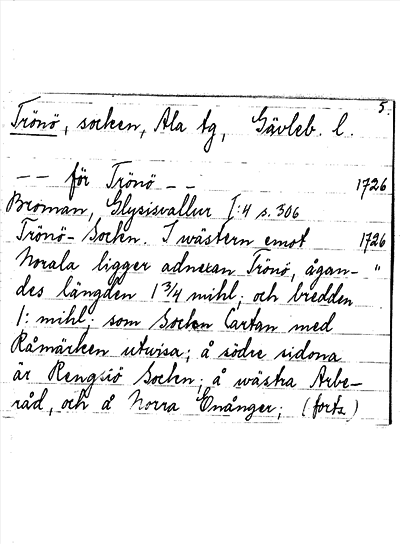 5.
Trönö, socken, Ala tg, Gävleb. l.
-- för Trönö -- 1726
Broman, Glysisvallur I:4 s. 306
Trönö-Socken. I wästern emot 1726
Norala ligger adnexan Trönö, ägan- "
des längden 1 3/4 mihl; och bredden
1: mihl; som Socken Cartan med
Råmärken utwisa; å södre sidona
är Rengsiö Socken; å wästra Arbe-
råd, och å Norra Enånger; (forts.)